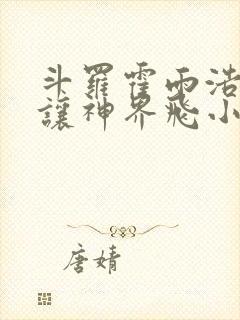 斗羅霍雨浩
讓神界飛小
唐婧